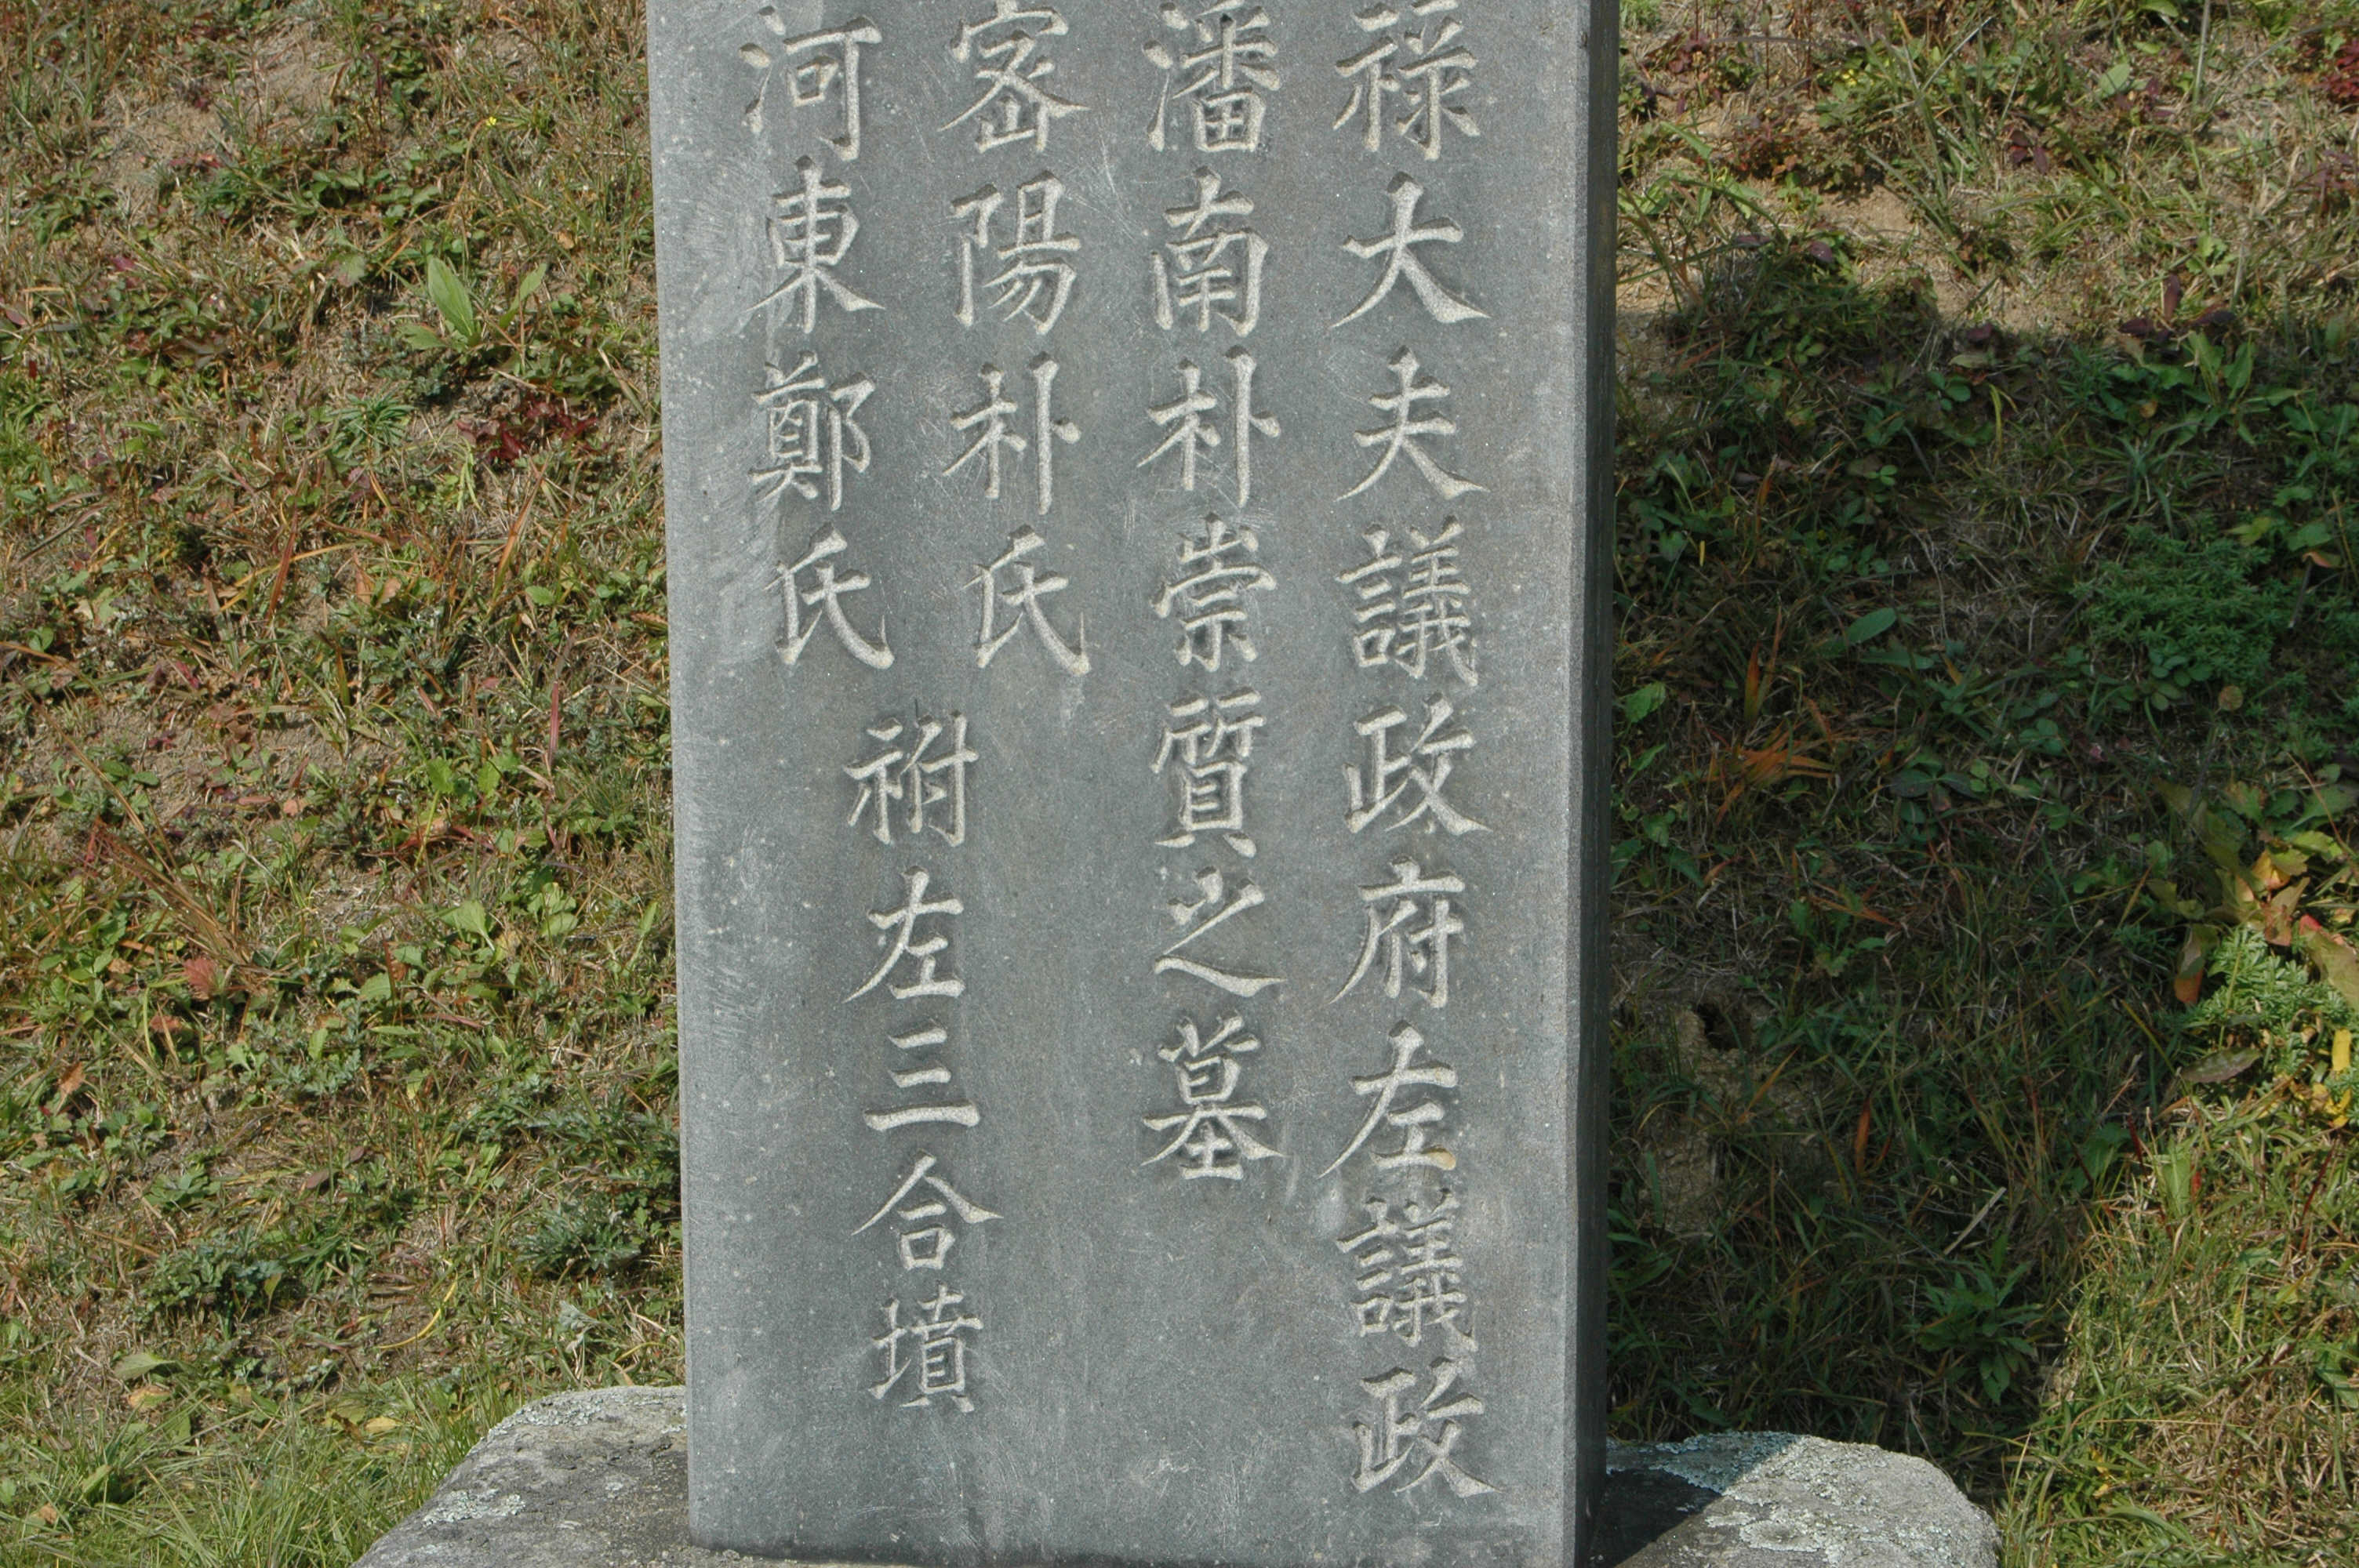 祿大夫議政府左議政
潘南朴崇質之墓
密陽朴氏
河東鄭氏
祔左三合墳